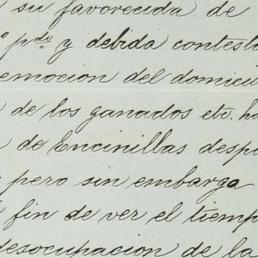 su favorecida de
pdo y debida contest
emocion del domici
de los ganados etc. ha
de Encinillas desp
pero sin embarga
fin de ver el tiemp
desocupacion de la